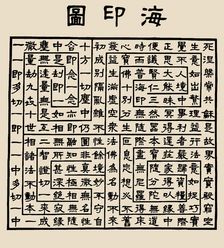 海印圖
死涅槃常共和是故界實寶殿窮坐
生意如出繁理益行法意如捉巧實
覺不人境中事利者嚴歸資糧善際
正思大能昧冥得還莊家得以緣中
便議賢仁三然器本寶隨分陀無道
時雨普海印無隨際盡無尼羅得床
心寶佛十別分生叵息妄想必不舊
發益生滿虛空衆法佛爲名動不來
初成別隔亂雜不性餘境妙不守自
十方一切塵中仍圓非眞微無名性
含即念一念亦即融知性極相無隨
中是劫即一如相無所甚深絶寂緣
塵無遠量無是互二智證切一來成
微量劫九世十世相諸法不動本一
一一即多切一即一一中多切一中